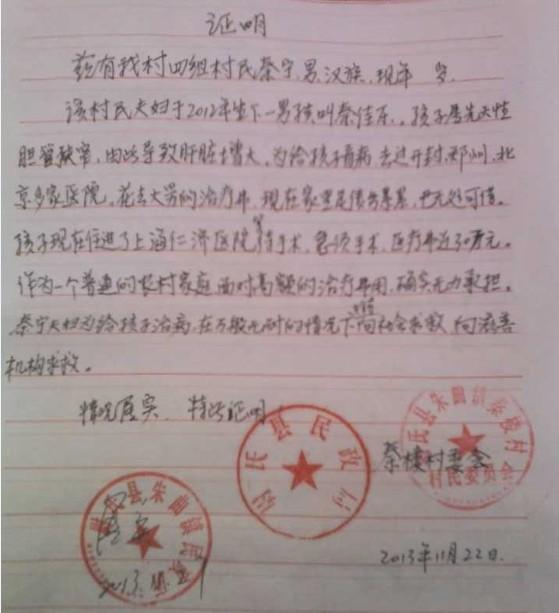 证明
兹有我村四组村民秦宁,男,汉族,现年 岁.
该村民夫妇于2012年生下一男孩叫秦佳乐。孩子属先天性
胆管狭窄,由此导致肝脏增大,为给孩子看病,去过开封,郑州,北
京多家医院,花去大量的治疗费,现在家里是债务累累,也无处可借。
孩子现在住进了上海仁济医院等待手术,急须手术,医疗费近30万元。
作为一个普通的农村家庭面对高额的治疗费用,确实无力承担。
秦宁夫妇为给孩子治病,在万般无奈的情况下向社会求救,向慈善
机构求救。
情况属实,特此证明
秦楼村委会
尉氏县民政局
尉氏县朱曲镇秦楼村
村民委员会
尉氏县朱曲镇民政所
2013年11月22日.